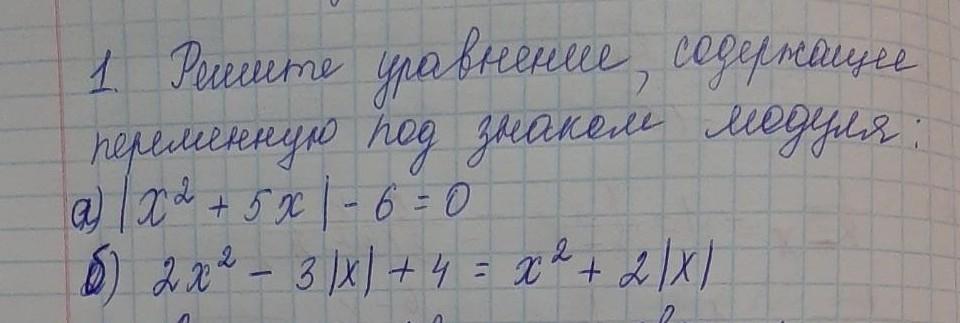 1. Решите уравнение, содержащее
переменную под знаком модуля:
а) |x² + 5x| - 6 = 0
б) 2x² - 3|x| + 4 = x² + 2|x|